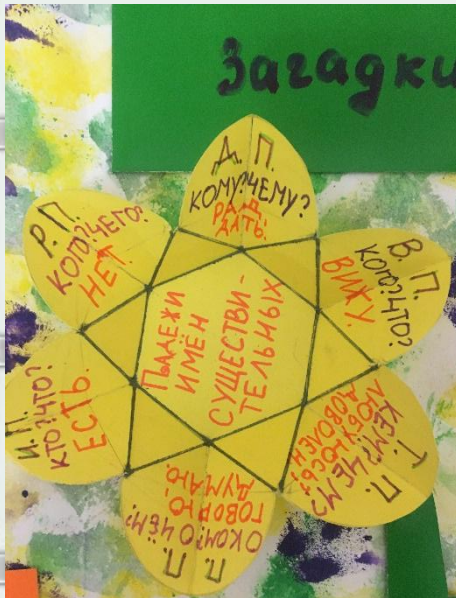 Загадки
Д. П.
КОМУ? ЧЕМУ?
РАД,
ДАТЬ.
В. П.
КОГО? ЧТО?
ВИЖУ.
Т. П.
КЕМ? ЧЕМ?
ЛЮБУЮСЬ,
ДОВОЛЕН
П. П.
О КОМ? О ЧЁМ?
ГОВОРЮ,
ДУМАЮ.
И. П.
КТО? ЧТО?
ЕСТЬ.
Р. П.
КОГО? ЧЕГО?
НЕТ.
ПАДЕЖИ
ИМЁН
СУЩЕСТВИ-
ТЕЛЬНЫХ